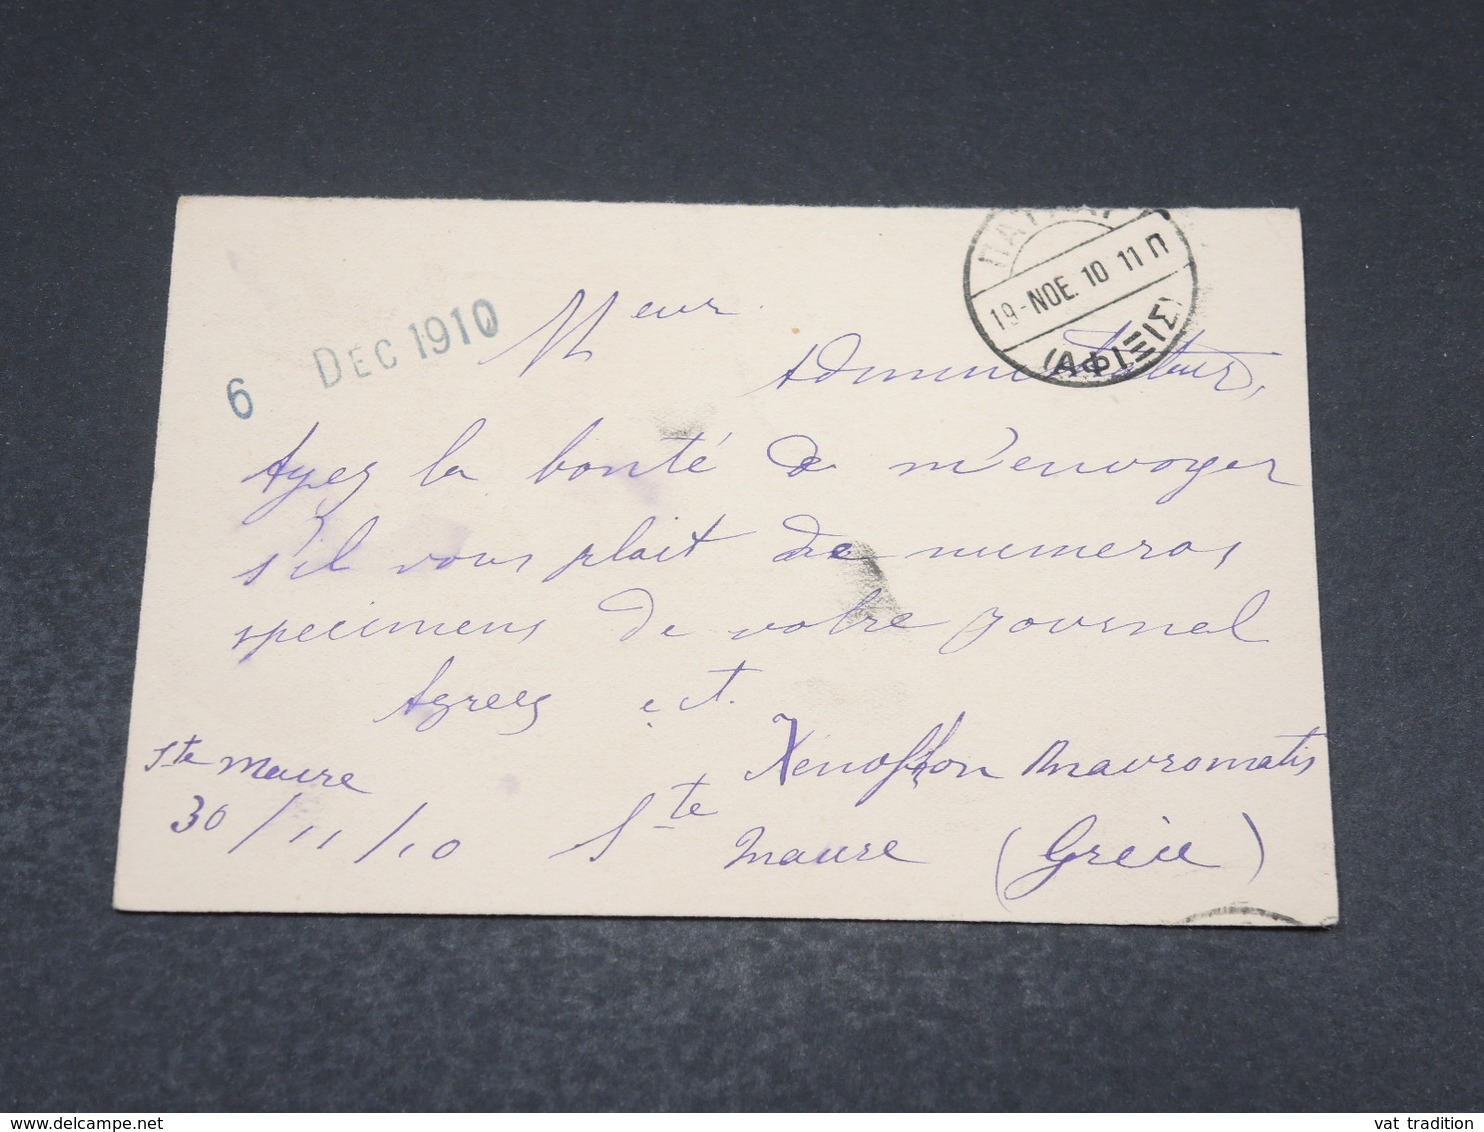 ΠΑΤΡΑΙ
19-ΝΟΕ. 10 11 Π
(ΑΦΙΞΙΣ)
6 DEC 1910
Meur
Administrateur,
Ayez la bonté de m'envoyer
s'il vous plait de numeros
specimens de votre journal
Agreez e.t.
Ste Maure
30/11/10
Xenophon Mavromatis
Ste Maure (Grèce)
vat tradition